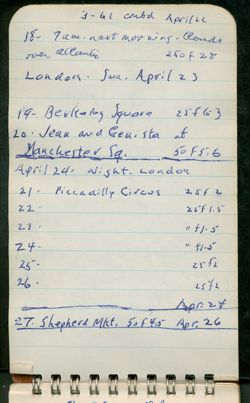 J-61 contd April 22
18- 7 a.m. next morning - clouds
over Atlantic 250 f 28
London. Sun. April 23
19- Berkeley Square 25 f 6.3
20. Jean and Genista at
Manchester Sq. 50 f 5.6
April 24. Night. London
21. Piccadilly Circus 25 f 2
22- 25 f 1.5
23. " f 1.5
24- " f 1.5
25- 25 f 2
26. 25 f 2
Apr. 24
27. Shepherd Mkt. 50 f 4.5 Apr. 26